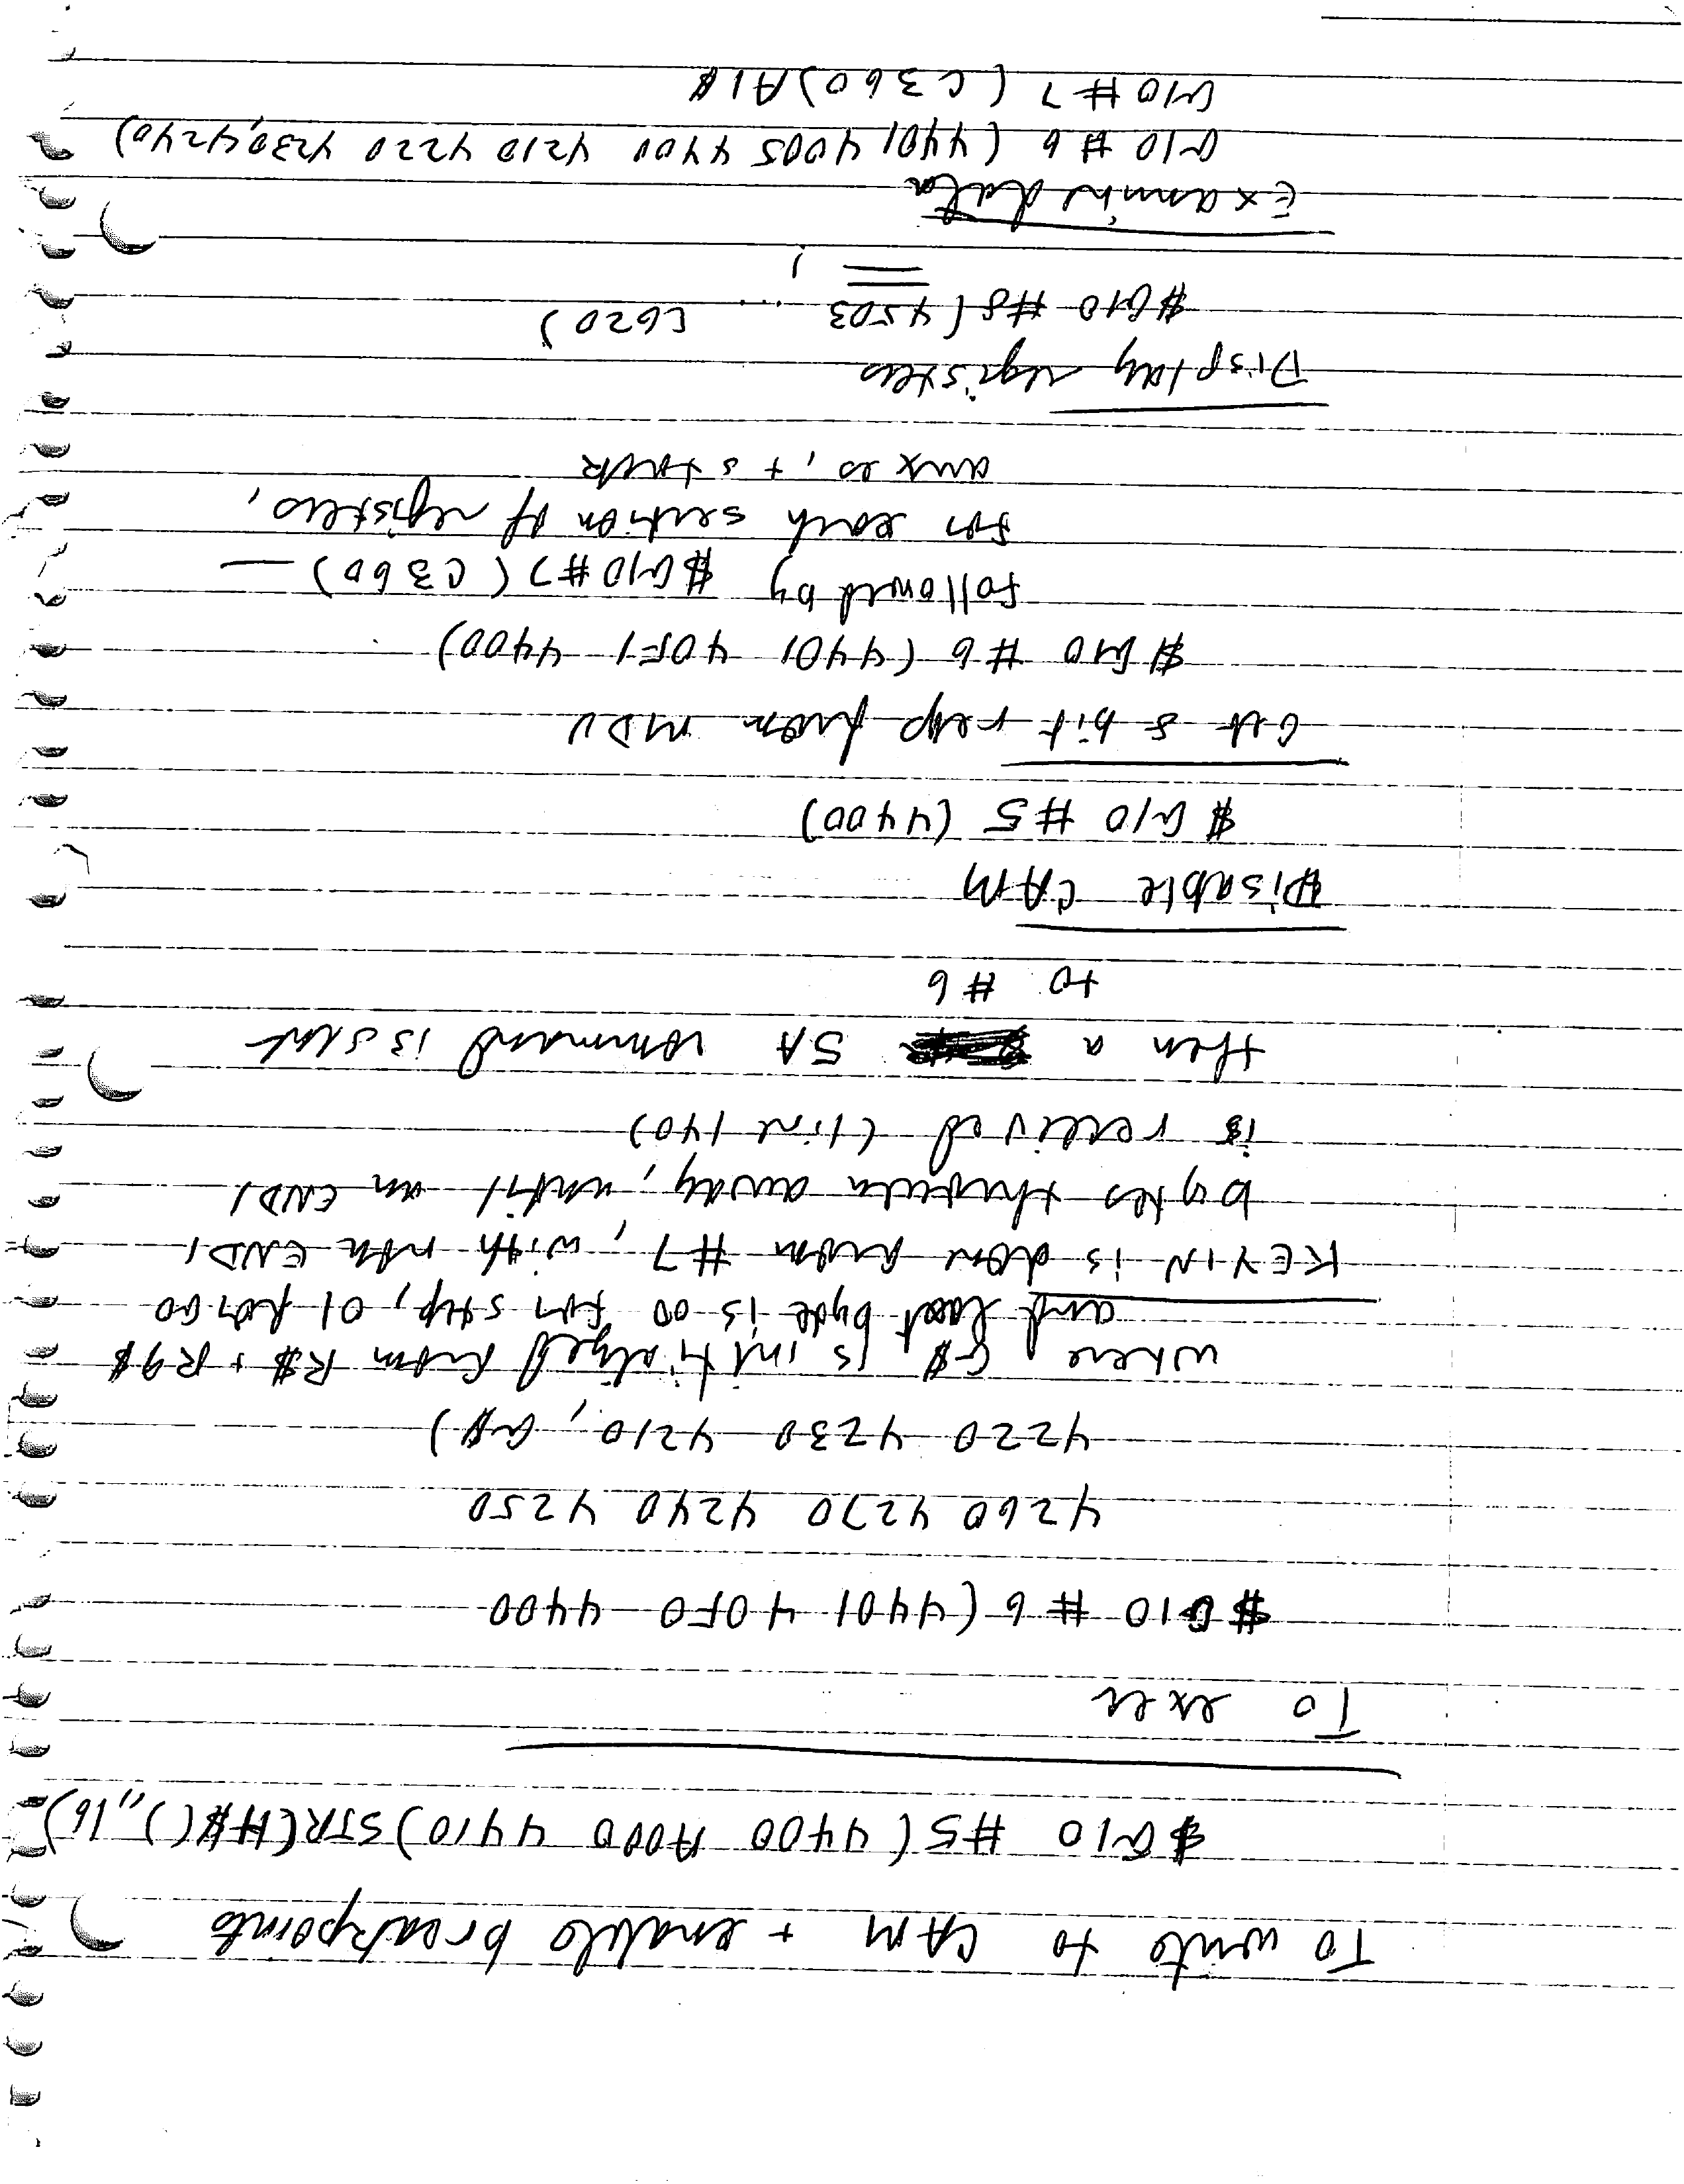 To write to CAM + enable breakpoints
$GIO #5 (4400 A000 4410) STR(H$(),,16)
To exec
$GIO #6 (4401 40F0 4400
4260 4270 4240 4250
4220 4230 4210, G$)
where G$ is initialized from R$ + R9$
and last byte is 00 for step, 01 for GO
KEYIN is done from #7, with non ENDI
bytes thrown away, until an ENDI
is received (line 140)
then a 5A command is sent
to #6
Disable CAM
$GIO #5 (4400)
Get 8 bit resp from MDU
$GIO #6 (4401 40F1 4400)
followed by $GIO #7 (C360) —
for each section of registers,
auxes, + stack
Display registers
$GIO #8 (4503 ... C620)
Examine data
GIO #6 (4401 4005 4400 4210 4220 4230, 4240)
GIO #7 (C360) A1$